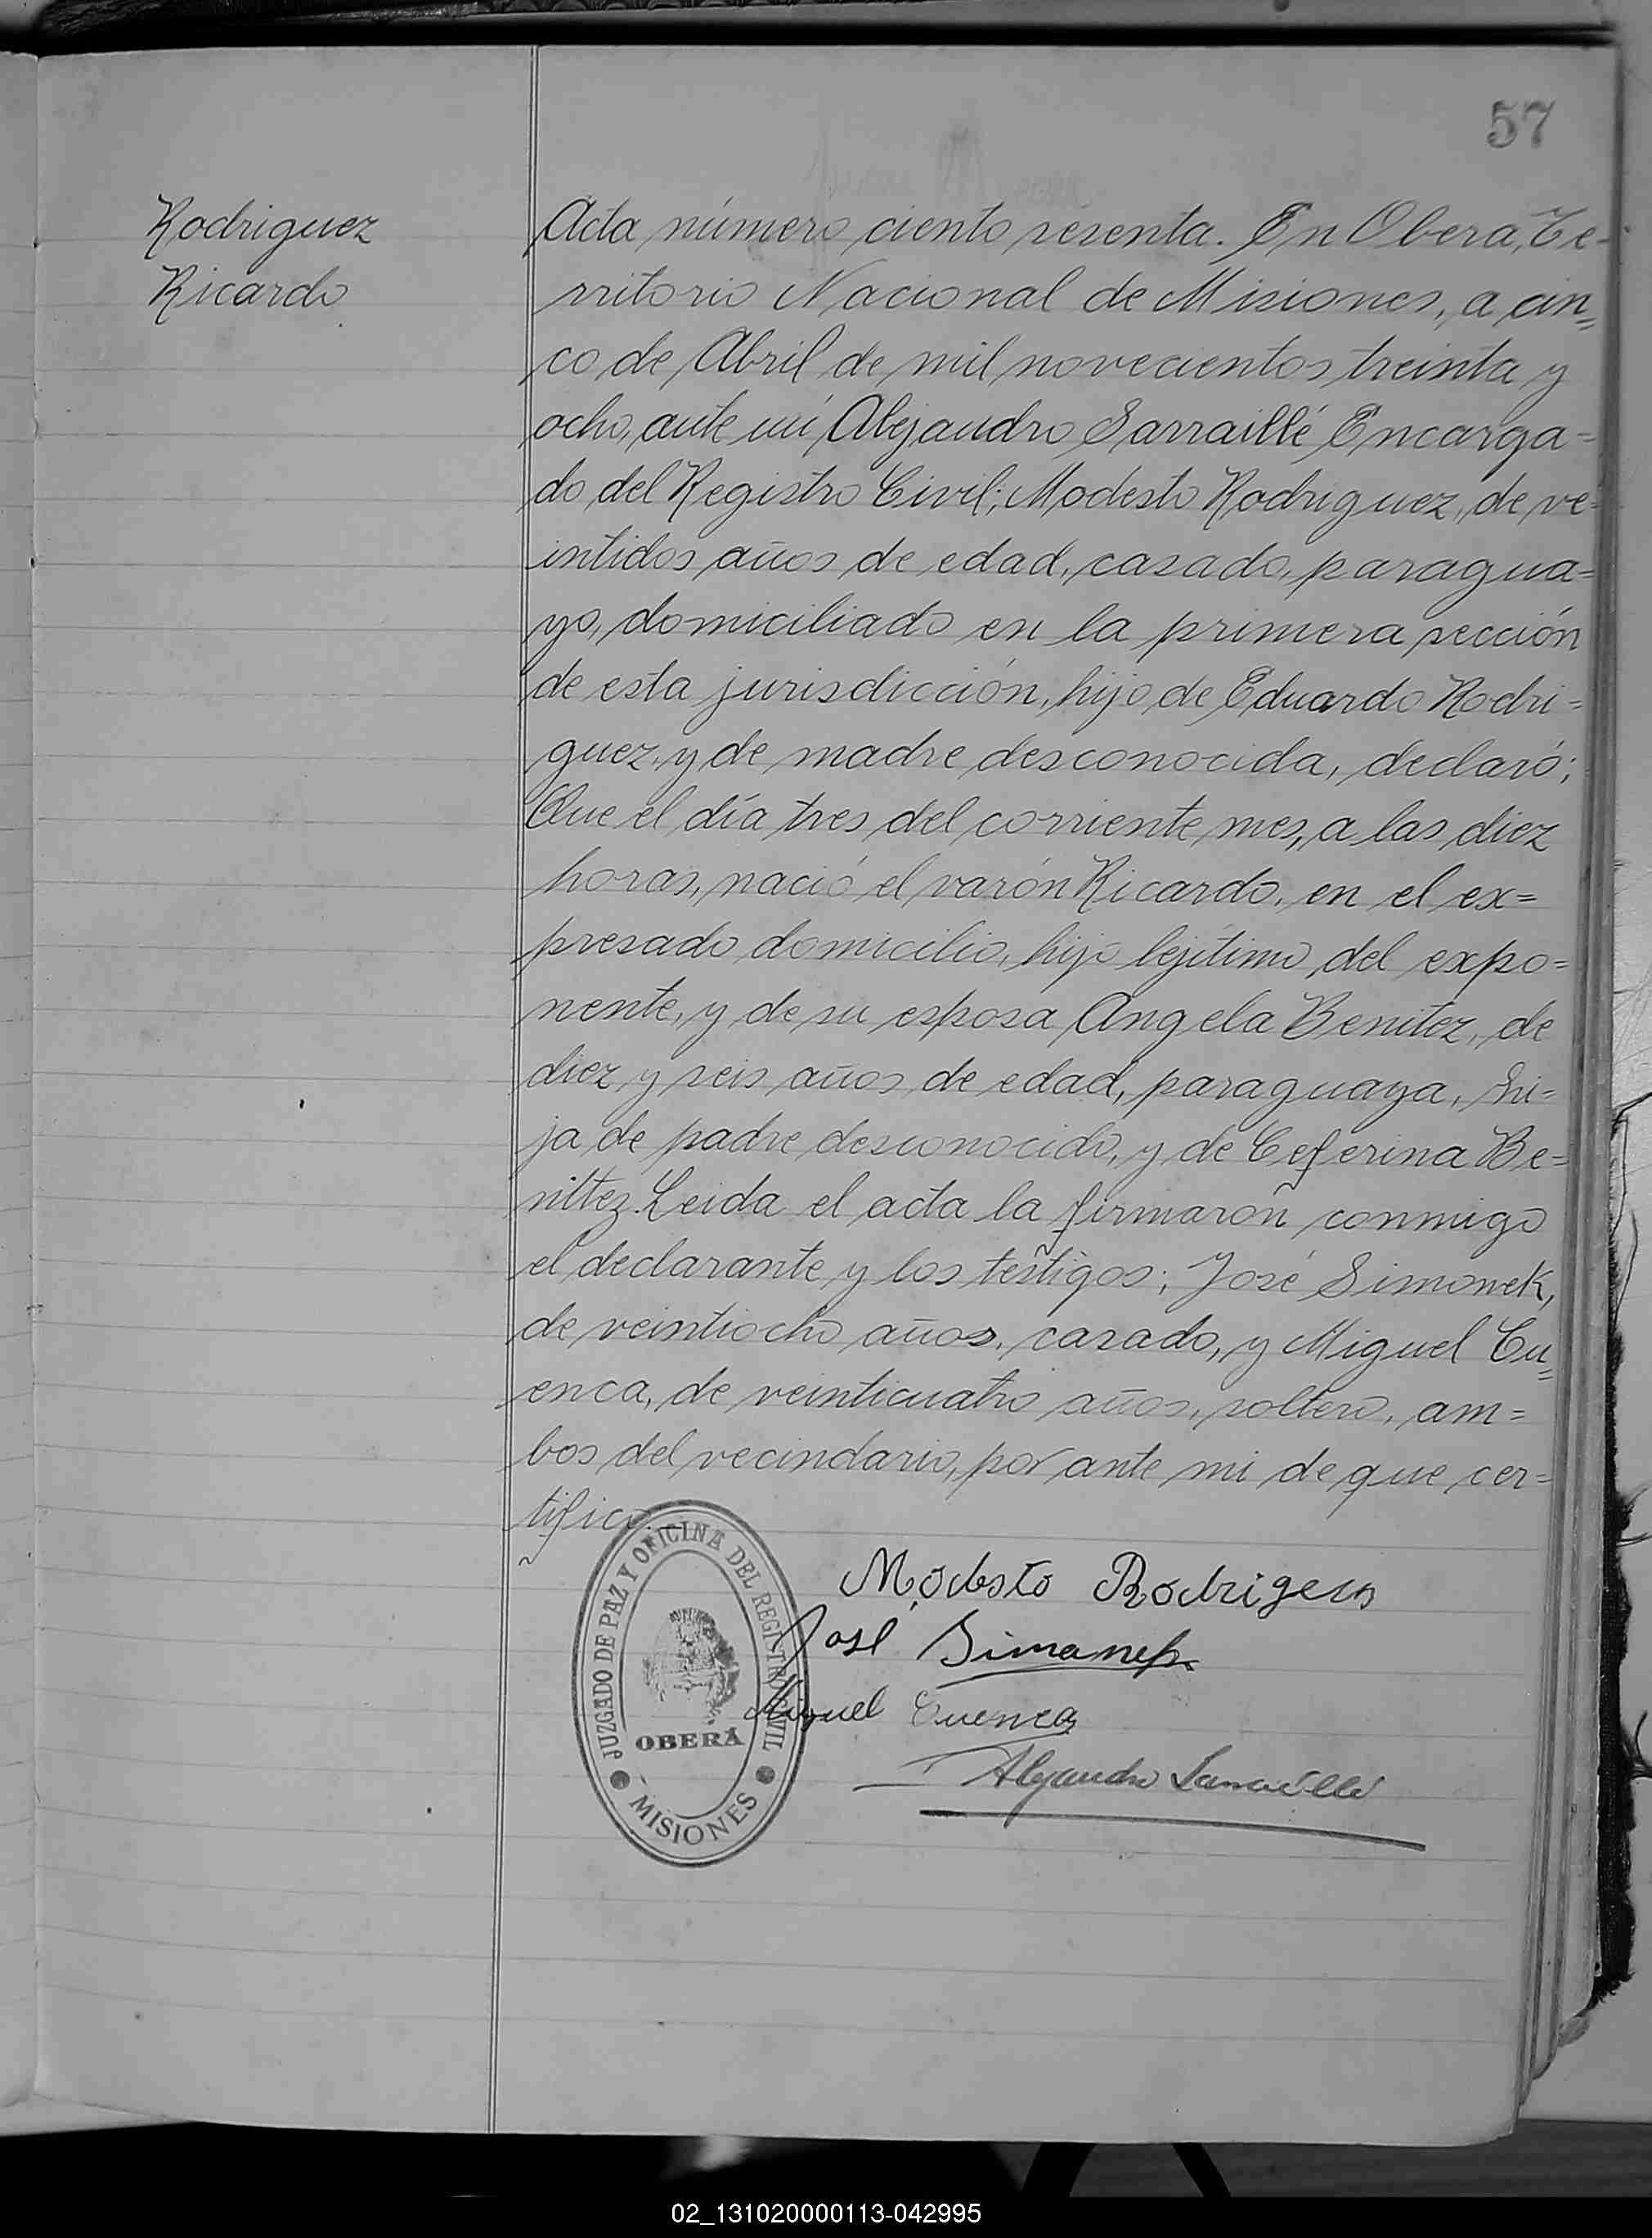 57
Rodriguez
Ricardo
Acta número ciento sesenta. En Oberá, Te-
rritorio Nacional de Misiones, a cin=
co de Abril de mil novecientos treinta y
ocho, ante mí Alejandro Sarraillé Encarga=
do del Registro Civil; Modesto Rodriguez, de ve=
intidos años de edad, casado, paragua=
yo, domiciliado en la primera sección
de esta jurisdicción, hijo de Eduardo Rodri=
guez, y de madre desconocida, declaró;
Que el día tres del corriente mes, a las diez
horas, nació el varón Ricardo, en el ex=
presado domicilio, hijo lejítimo del expo=
nente, y de su esposa Angela Benitez, de
diez y seis años de edad, paraguaya, hi=
ja de padre desconocido, y de Ceferina Be=
nittez. Leida el acta la firmaron conmigo
el declarante y los testigos; José Simonek,
de veintiocho años, casado, y Miguel Cu=
enca, de veinticuatro años, soltero, am=
bos del vecindario, por ante mi de que cer=
tifico.
Modesto Rodrigues
José Simanek
Miguel Cuenca
Alejandro Sarraillé
JUZGADO DE PAZ Y OFICINA DEL REGISTRO CIVIL
OBERÁ
MISIONES
02_131020000113-042995